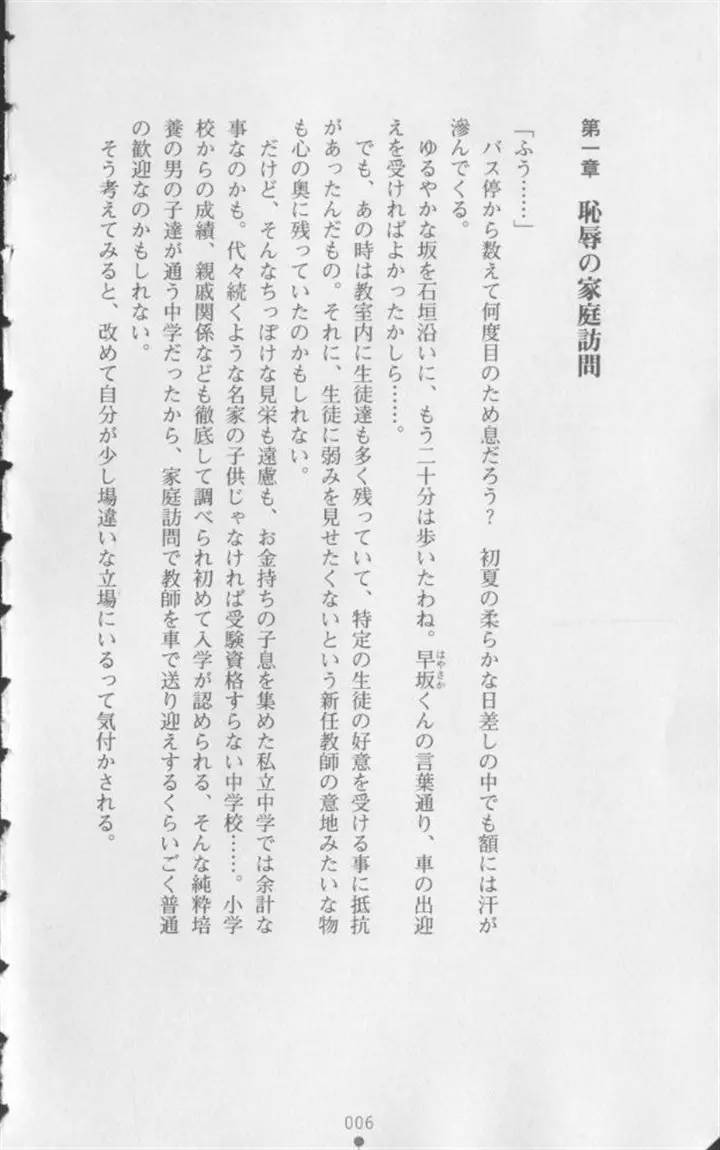 第一章　恥辱の家庭訪問
「ふう……」
　バス停から数えて何度目のため息だろう？　初夏の柔らかな日差しの中でも額には汗が
滲んでくる。
　ゆるやかな坂を石垣沿いに、もう二十分は歩いたわね。早坂くんの言葉通り、車の出迎
はやさか
えを受ければよかったかしら……。
　でも、あの時は教室内に生徒達も多く残っていて、特定の生徒の好意を受ける事に抵抗
があったんだもの。それに、生徒に弱みを見せたくないという新任教師の意地みたいな物
も心の奥に残っていたのかもしれない。
　だけど、そんなちっぽけな見栄も遠慮も、お金持ちの子息を集めた私立中学では余計な
事なのかも。代々続くような名家の子供じゃなければ受験資格すらない中学校……。小学
校からの成績、親戚関係なども徹底して調べられ初めて入学が認められる、そんな純粋培
養の男の子達が通う中学だったから、家庭訪問で教師を車で送り迎えするくらいごく普通
の歓迎なのかもしれない。
　そう考えてみると、改めて自分が少し場違いな立場にいるって気付かされる。
006